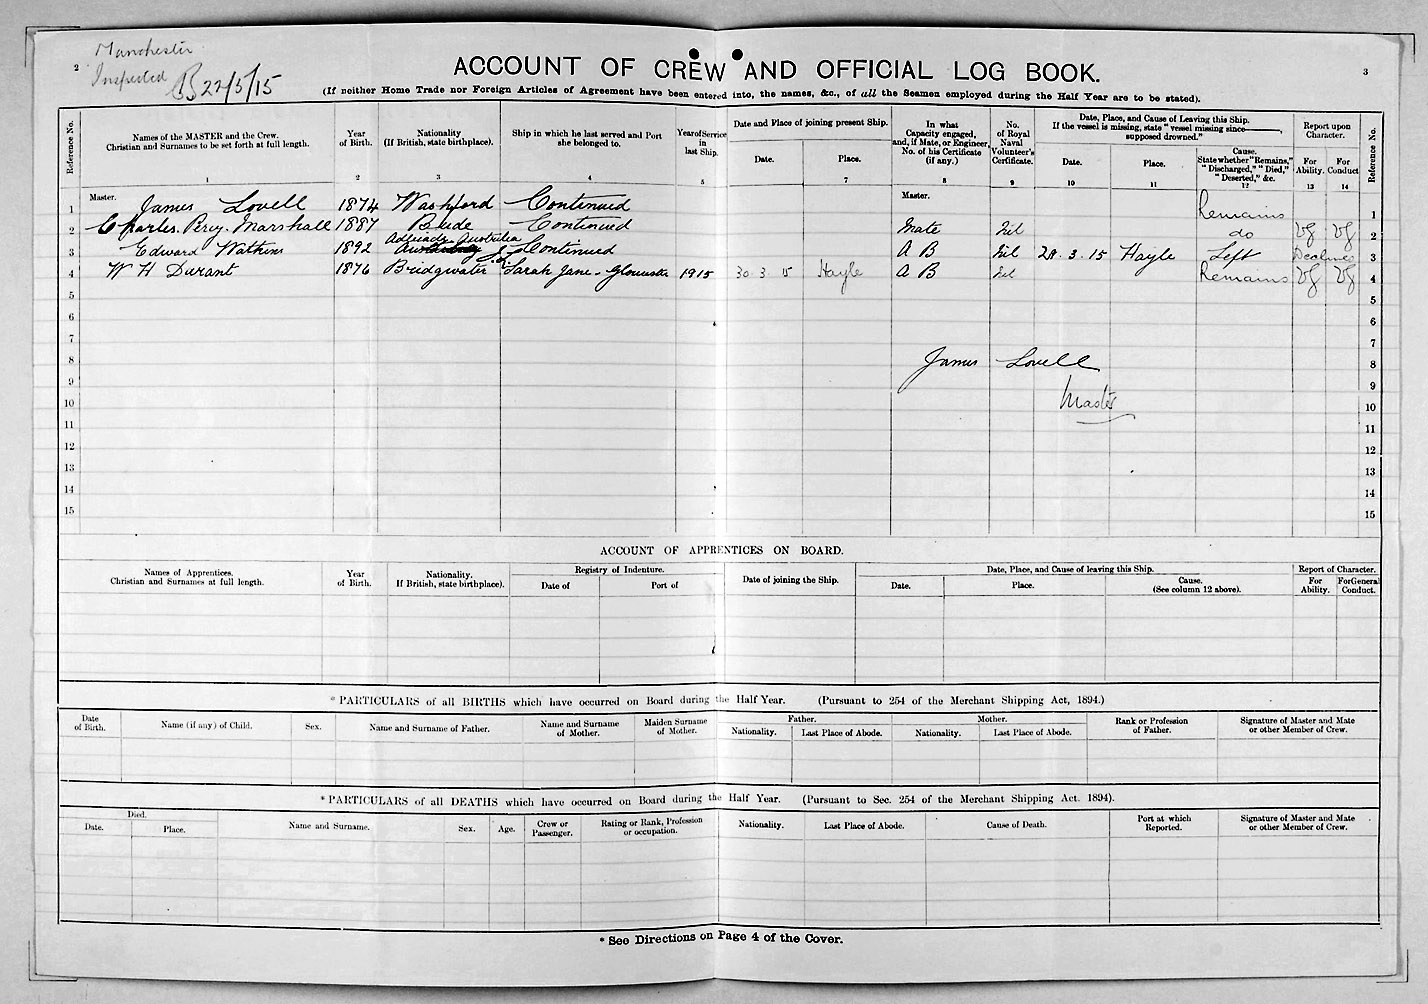 Manchester
2
Inspected
22/5/15
3
ACCOUNT OF CREW AND OFFICIAL LOG BOOK.
(If neither Home Trade nor Foreign Articles of Agreement have been entered into, the names, &c., of all the Seamen employed during the Half Year are to be stated).
Reference No. Names of the MASTER and the Crew. Christian and Surnames to be set forth at full length. Year of Birth. Nationality (If British, state birthplace). Ship in which he last served and Port she belonged to. Year of Service in last Ship. Date and Place of joining present Ship. Date. Place. In what Capacity engaged, and, if Mate, or Engineer, No. of his Certificate (if any.) No. of Royal Naval Volunteer's Certificate. Date, Place, and Cause of Leaving this Ship. If the vessel is missing, state "vessel missing since ———, supposed drowned." Date. Place. Cause. State whether "Remains," "Discharged," "Died," "Deserted," &c. Report upon Character. For Ability. For Conduct Reference No.
1 2 3 4 5 7 8 9 10 11 12 13 14
Master. Master.
1 James Lovell 1874 Washford Continued Remains 1
2 Charles. Percy. Marshall 1887 Bude Continued Mate Nil do VG VG 2
Adelaide Australia
3 Edward Watkins 1892 Continued A B Nil 28.3.15 Hayle Left Declines 3
4 W H Durant 1876 Bridgwater Sarah Jane - Gloucester 1915 30.3.15 Hayle A B Nil Remains VG VG 4
5 5
6 6
7 7
8 James Lovell 8
9 9
10 Master 10
11 11
12 12
13 13
14 14
15 15
ACCOUNT OF APPRENTICES ON BOARD.
Names of Apprentices. Christian and Surnames at full length. Year of Birth. Nationality. If British, state birthplace). Registry of Indenture. Date of Port of Date of joining the Ship. Date, Place, and Cause of leaving this Ship. Date. Place. Cause. (See column 12 above). Report of Character. For Ability. For General Conduct.
* PARTICULARS of all BIRTHS which have occurred on Board during the Half Year. (Pursuant to 254 of the Merchant Shipping Act, 1894.)
Date of Birth. Name (if any) of Child. Sex. Name and Surname of Father. Name and Surname of Mother. Maiden Surname of Mother. Father. Nationality. Last Place of Abode. Mother. Nationality. Last Place of Abode. Rank or Profession of Father. Signature of Master and Mate or other Member of Crew.
* PARTICULARS of all DEATHS which have occurred on Board during the Half Year. (Pursuant to Sec. 254 of the Merchant Shipping Act. 1894).
Died. Date. Place. Name and Surname. Sex. Age. Crew or Passenger. Rating or Rank, Profession or occupation. Nationality. Last Place of Abode. Cause of Death. Port at which Reported. Signature of Master and Mate or other Member of Crew.
* See Directions on Page 4 of the Cover.